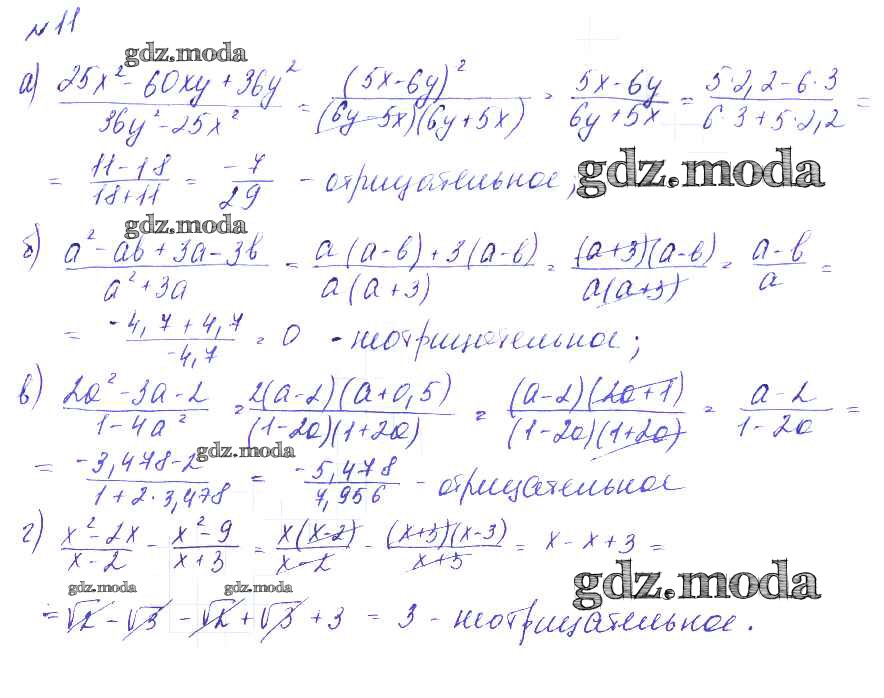 № 11
gdz.moda
а) (25x² - 60xy + 36y²)/(36y² - 25x²) = (5x-6y)²/((6y-5x)(6y+5x)) = (5x-6y)/(6y+5x) = (5·2,2-6·3)/(6·3+5·2,2) =
= (11-18)/(18+11) = -7/29 - отрицательное; gdz.moda
gdz.moda
б) (a² - ab + 3a - 3b)/(a² + 3a) = (a(a-b)+3(a-b))/(a(a+3)) = ((a+3)(a-b))/(a(a+3)) = (a-b)/a =
= (-4,7+4,7)/(-4,7) = 0 - неотрицательное;
в) (2a² - 3a - 2)/(1-4a²) = (2(a-2)(a+0,5))/((1-2a)(1+2a)) = ((a-2)(2a+1))/((1-2a)(1+2a)) = (a-2)/(1-2a) =
gdz.moda
= (-3,478-2)/(1+2·3,478) = -5,478/7,956 - отрицательное
г) (x²-2x)/(x-2) - (x²-9)/(x+3) = (x(x-2))/(x-2) - ((x+3)(x-3))/(x+3) = x - x + 3 =
gdz.moda gdz.moda gdz.moda
= √2 - √3 - √2 + √3 + 3 = 3 - неотрицательное.